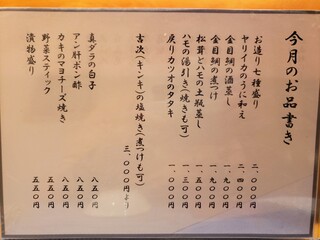 今月のお品書き
お造り七種盛り 二、〇〇〇円
ヤリイカのうに和え 二、四〇〇円
金目鯛の酒蒸し 一、九〇〇円
金目鯛の煮つけ 一、九〇〇円
松茸とハモの土瓶蒸し 一、五〇〇円
ハモの湯引き(焼きも可) 一、三〇〇円
戻りカツオのタタキ 一、〇〇〇円
吉次(キンキ)の塩焼き(煮つけも可) 三、〇〇〇円より
真ダラの白子 八五〇円
アン肝ポン酢 八五〇円
カキのマヨチーズ焼き 八五〇円
野菜スティック 五五〇円
漬物盛り 五五〇円